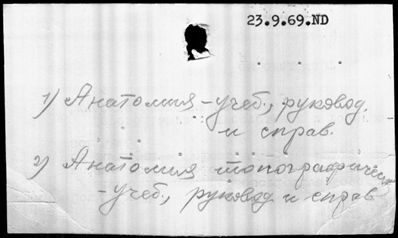 23.9.69.ND
1) Анатомия - учеб., руковод.
и справ.
2) Анатомия топографическ
- учеб., руковод и справ